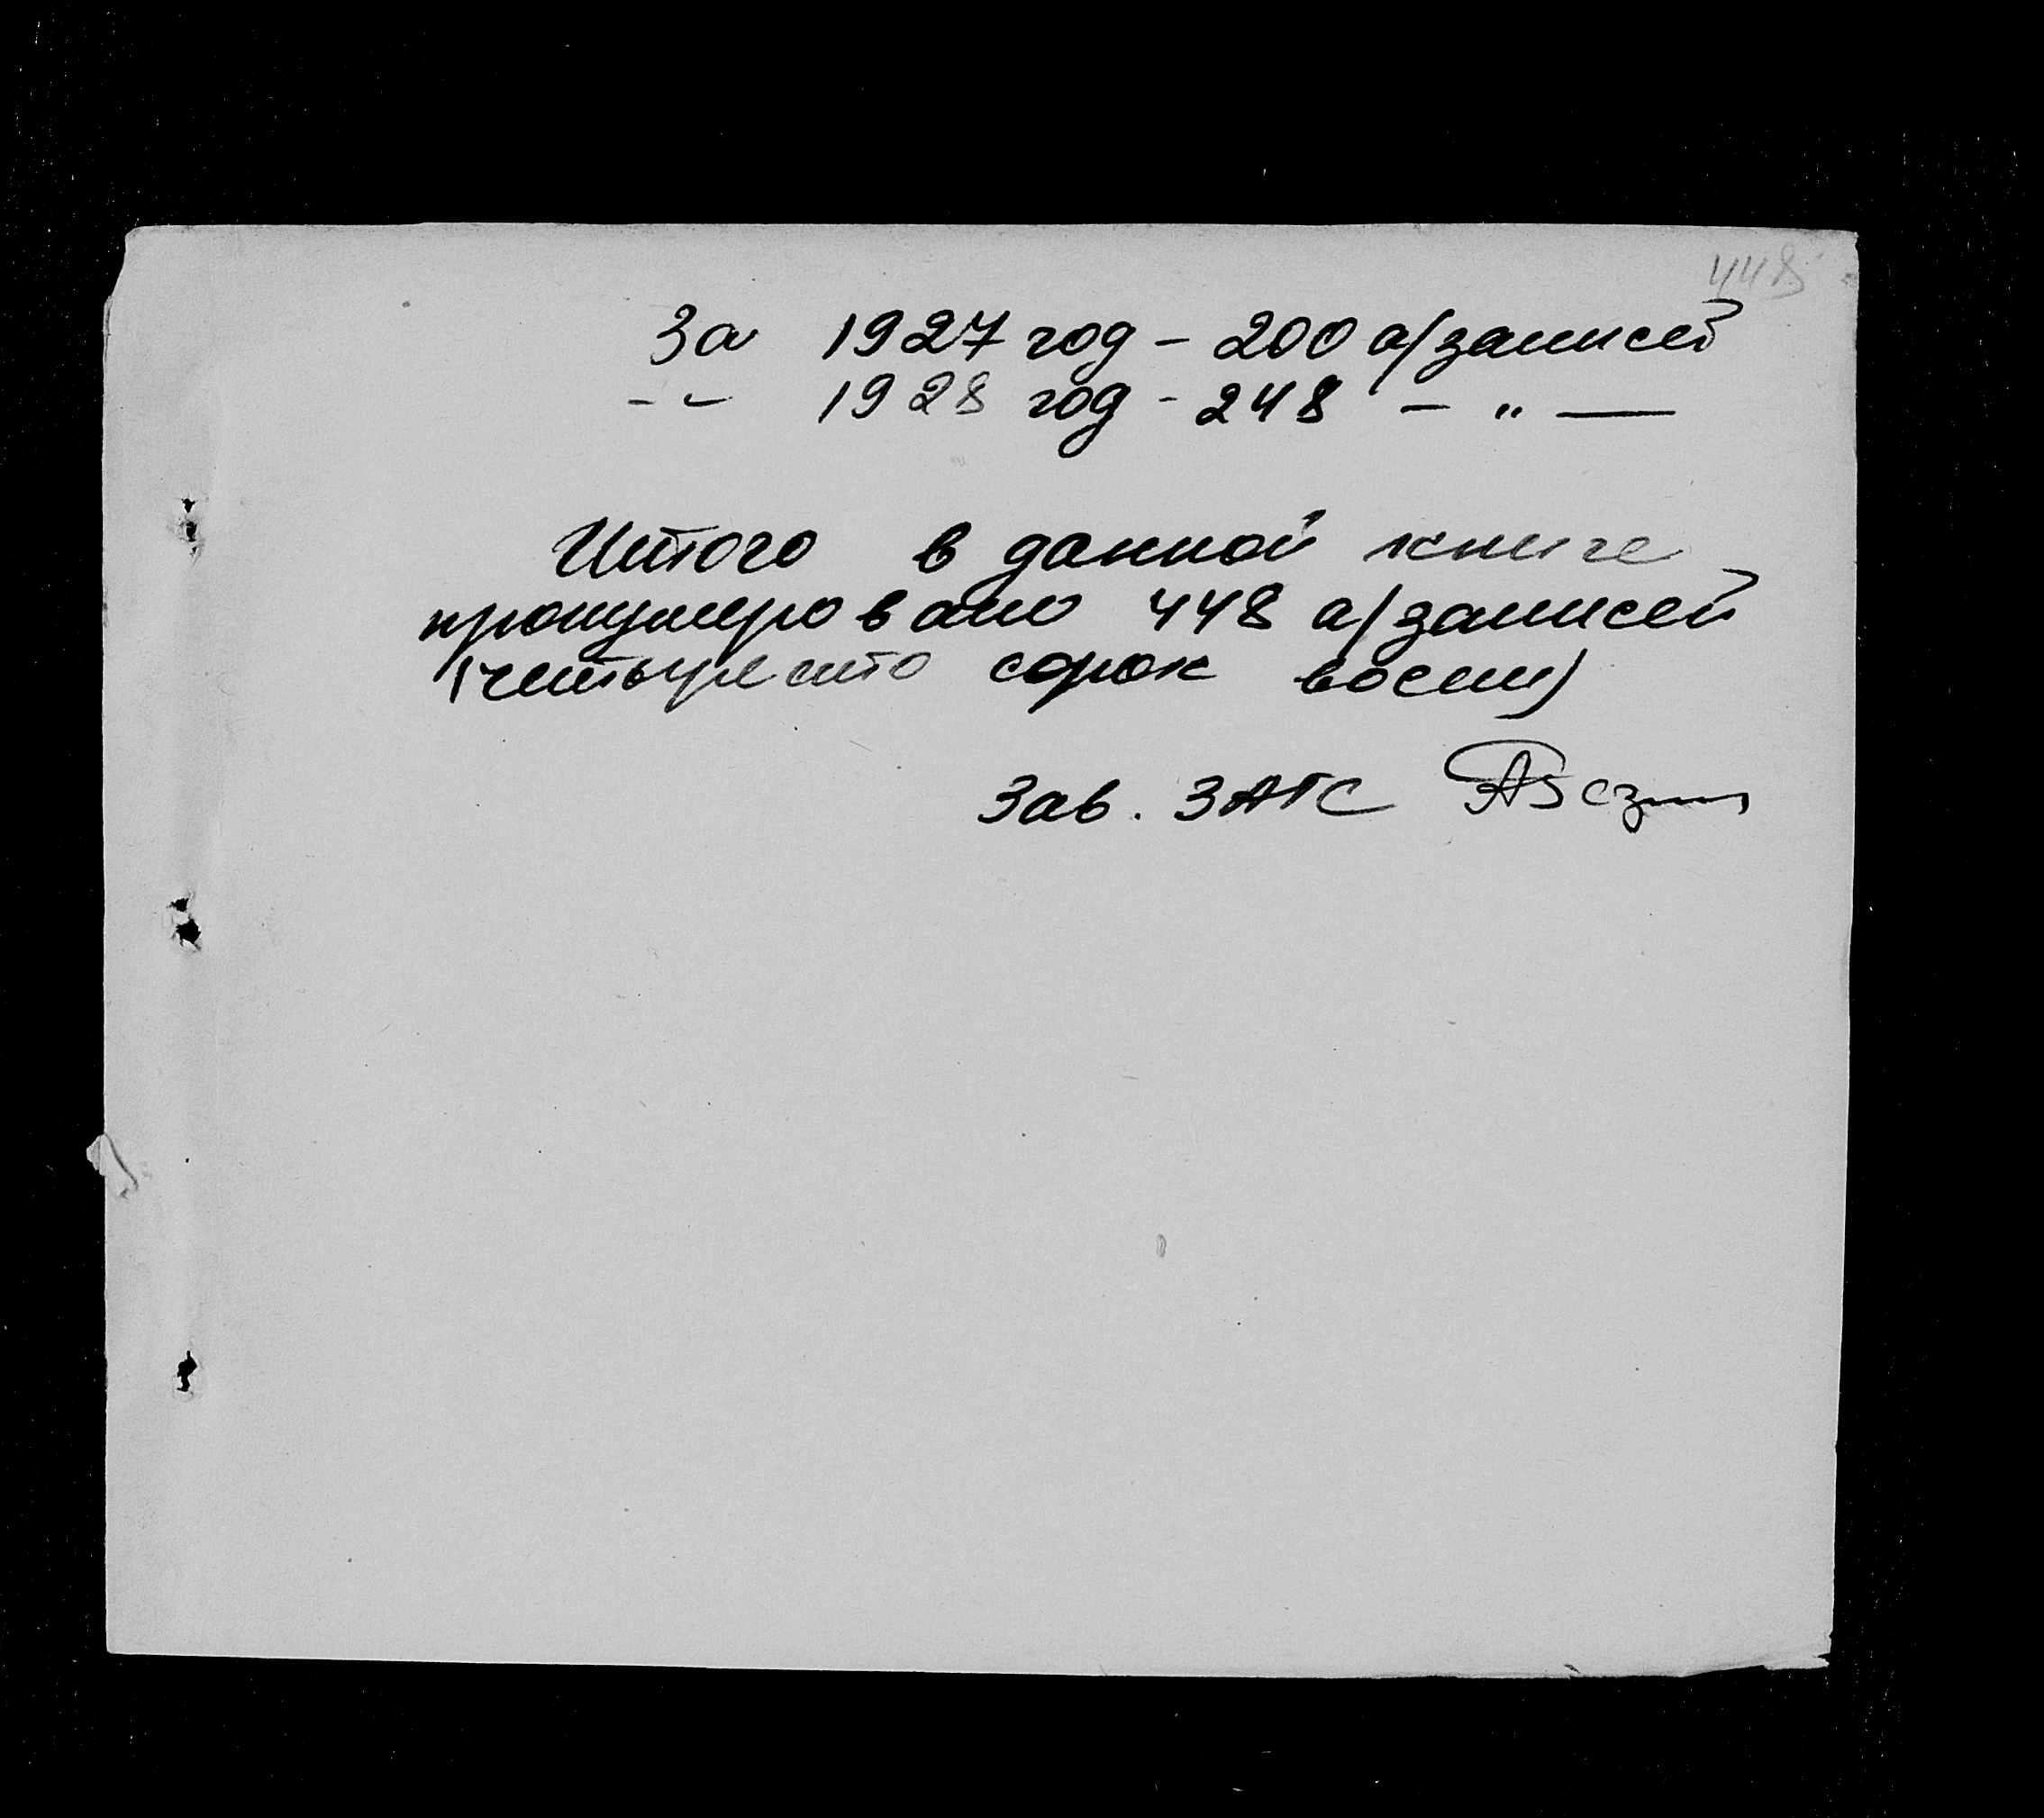 448
За 1927 год - 200 а/записей
-"- 1928 год - 248 - " -
Итого в данной книге
пронумеровано 448 а/записей
(четыресто сорок восемь)
Зав. ЗАГС